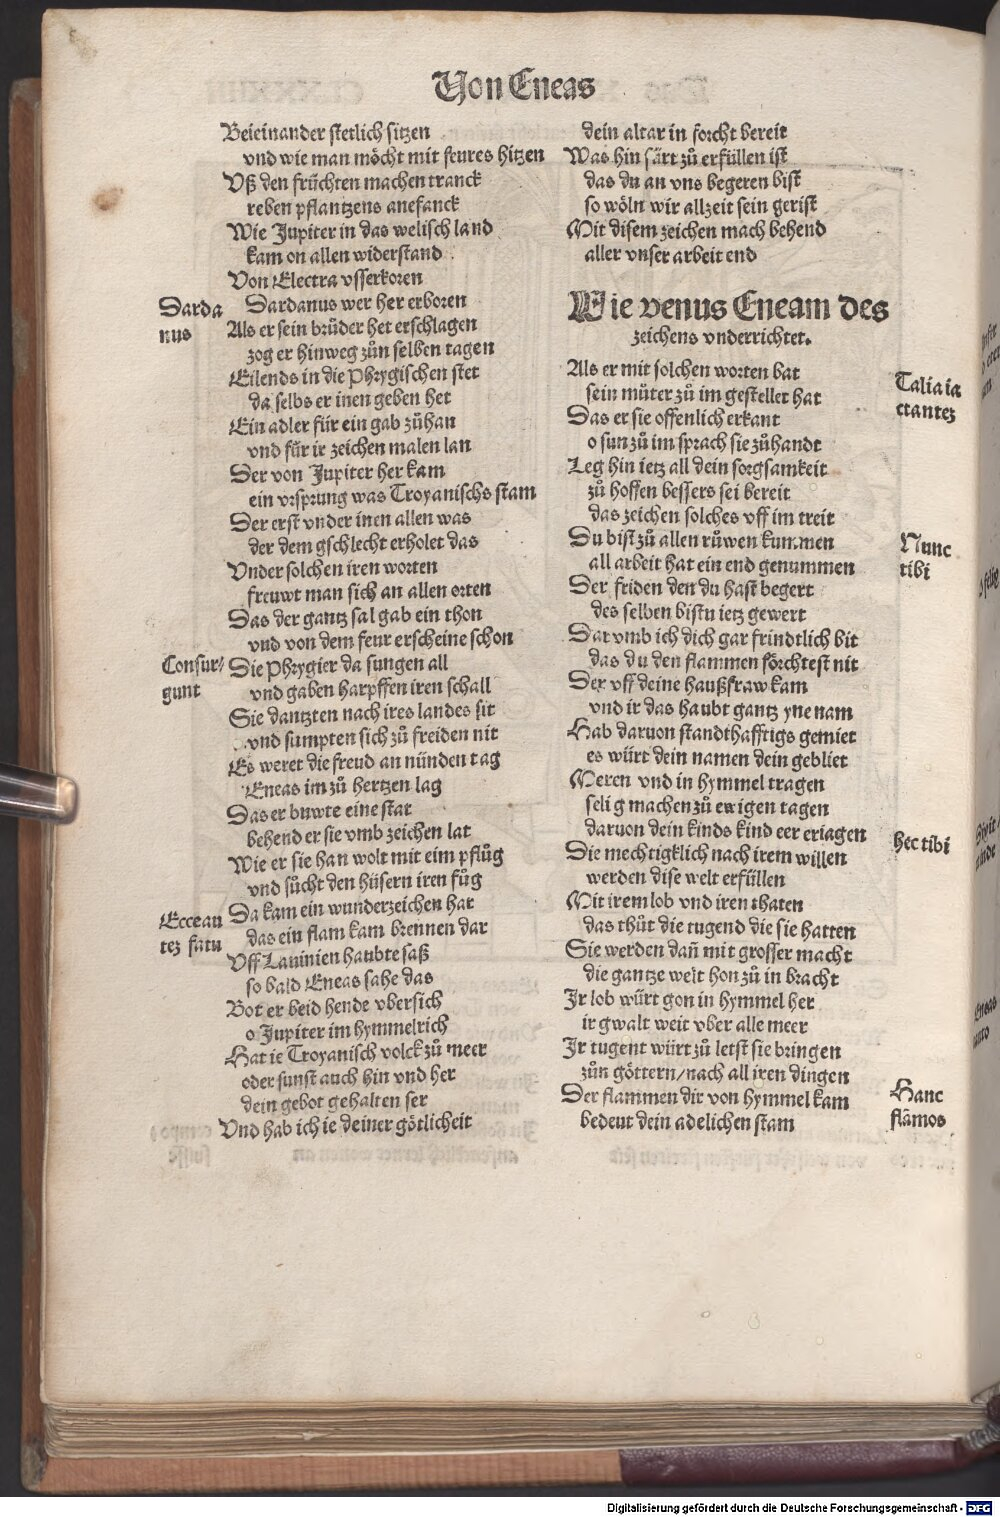 Von Eneas
Beieinander stetlich sitzen
vnd wie man möcht mit feures hitzen
Vß den früchten machen tranck
reben pflantzens anefanck
Wie Jupiter in das welisch land
kam on allen widerstand
Von Electra vsserkoren
Sardanus wer her erboren
Als er sein brůder het erschlagen
zog er hinweg zůn selben tagen
Eilends in die Phrygischen stet
da selbs er inen geben het
Ein adler für ein gab zůhan
vnd für ir zeichen malen lan
Der von Jupiter her kam
ein vrsprung was Troyanischs stam
Der erst vnder inen allen was
der dem gschlecht erholet das
Vnder solchen iren worten
freuwt man sich an allen orten
Das der gantz sal gab ein thon
vnd von dem feur erscheine schon
Die Phrygier da sungen all
vnd gaben harpffen iren schall
Sie dantzten nach ires landes sit
vnd sumpten sich zů freiden nit
Es weret die freud an nünden tag
Eneas im zů hertzen lag
Das er buwte eine stat
behend er sie vmb zeichen lat
Wie er sie han wolt mit eim pflůg
vnd sůcht den hüsern iren fůg
Da kam ein wunderzeichen har
das ein flam kam brennen dar
Vff Lauinien haubte saß
so bald Eneas sahe das
Bot er beid hende vbersich
o Jupiter im hymmelrich
Hat ie Troyanisch volck zů meer
oder sunst auch hin vnd her
dein gebot gehalten ser
Vnd hab ich ie deiner götlicheit
Sarda
nus
Consur⸗
gunt
Ecce an
tez fatu
dein altar in forcht bereit
Was hin färt zů erfüllen ist
das du an vns begeren bist
so wöln wir allzeit sein gerist
Mit disem zeichen mach behend
aller vnser arbeit end
Wie venus Eneam des
zeichens vnderrichtet.
Als er mit solchen worten bat
sein můter zů im gestellet hat
Das er sie offenlich erkant
o sun zů im sprach sie zůhandt
Leg hin ietz all dein sorgsamkeit
zů hoffen bessers sei bereit
das zeichen solches vff im treit
Du bist zů allen růwen kummen
all arbeit hat ein end genummen
Der friden den du hast begert
des selben bistu ietz gewert
Dar vmb ich dich gar frindtlich bit
das du den flammen förchtest nit
Der vff deine haußfraw kam
vnd ir das haubt gantz yne nam
Hab daruon standthafftigs gemiet
es würt dein namen dein gebliet
Meren vnd in hymmel tragen
selig machen zů ewigen tagen
daruon dein kinds kind eer eriagen
Die mechtigklich nach irem willen
werden dise welt erfüllen
Mit irem lob vnd iren thaten
das thůt die tugend die sie hatten
Sie werden dañ mit grosser macht
die gantze welt hon zů in bracht
Jr lob würt gon in hymmel her
ir gwalt weit vber alle meer
Jr tugent würt zů letst sie bringen
zůn göttern/nach all iren dingen
Der flammen dir von hymmel kam
bedeut dein adelichen stam
Talia ia
ctantez
Nunc
tibi
hec tibi
Hanc
flãmos
Digitalisierung gefördert durch die Deutsche Forschungsgemeinschaft - DFG